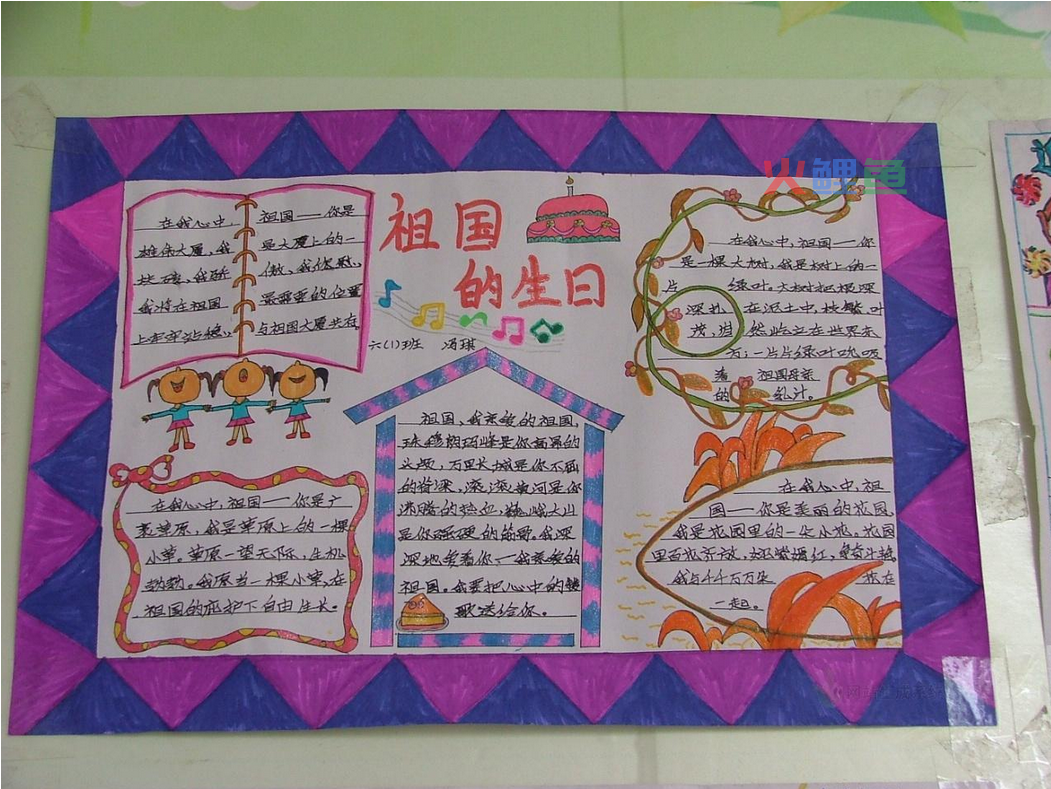 火鲤鱼
祖国
的生日
六(1)班 冯琪
在我心中,祖国——你是
雄伟大厦,我是大厦上的一
块砖,我骄傲,我
我将在祖国最需要的位置
上牢牢站稳,与祖国大厦共存。
在我心中,祖国——你
是一棵大树,我是树上的一
片绿叶。大树把根深
深扎在泥土中,枝繁叶
茂,
一片片绿叶
祖国母亲
的
祖国,我亲爱的祖国,
珠穆朗玛峰是你高昂的
头颅,万里长城是你不屈
的脊梁,滚滚黄河是你
沸腾的
是你强硬的筋骨。我深
深地爱着你,—我亲爱的
祖国。我要把心中的赞
歌送给你。
在我心中,祖国——你是广
袤草原,我是草原上的一棵
小草。草原一望无际,生机
勃勃。我愿当一棵小草,在
祖国的庇护下自由生长。
在我心中,祖
国——你是美丽的花园,
我是花园里的一朵小花。花园
里百花齐放,姹紫嫣红,
我与千千万万朵
一起。